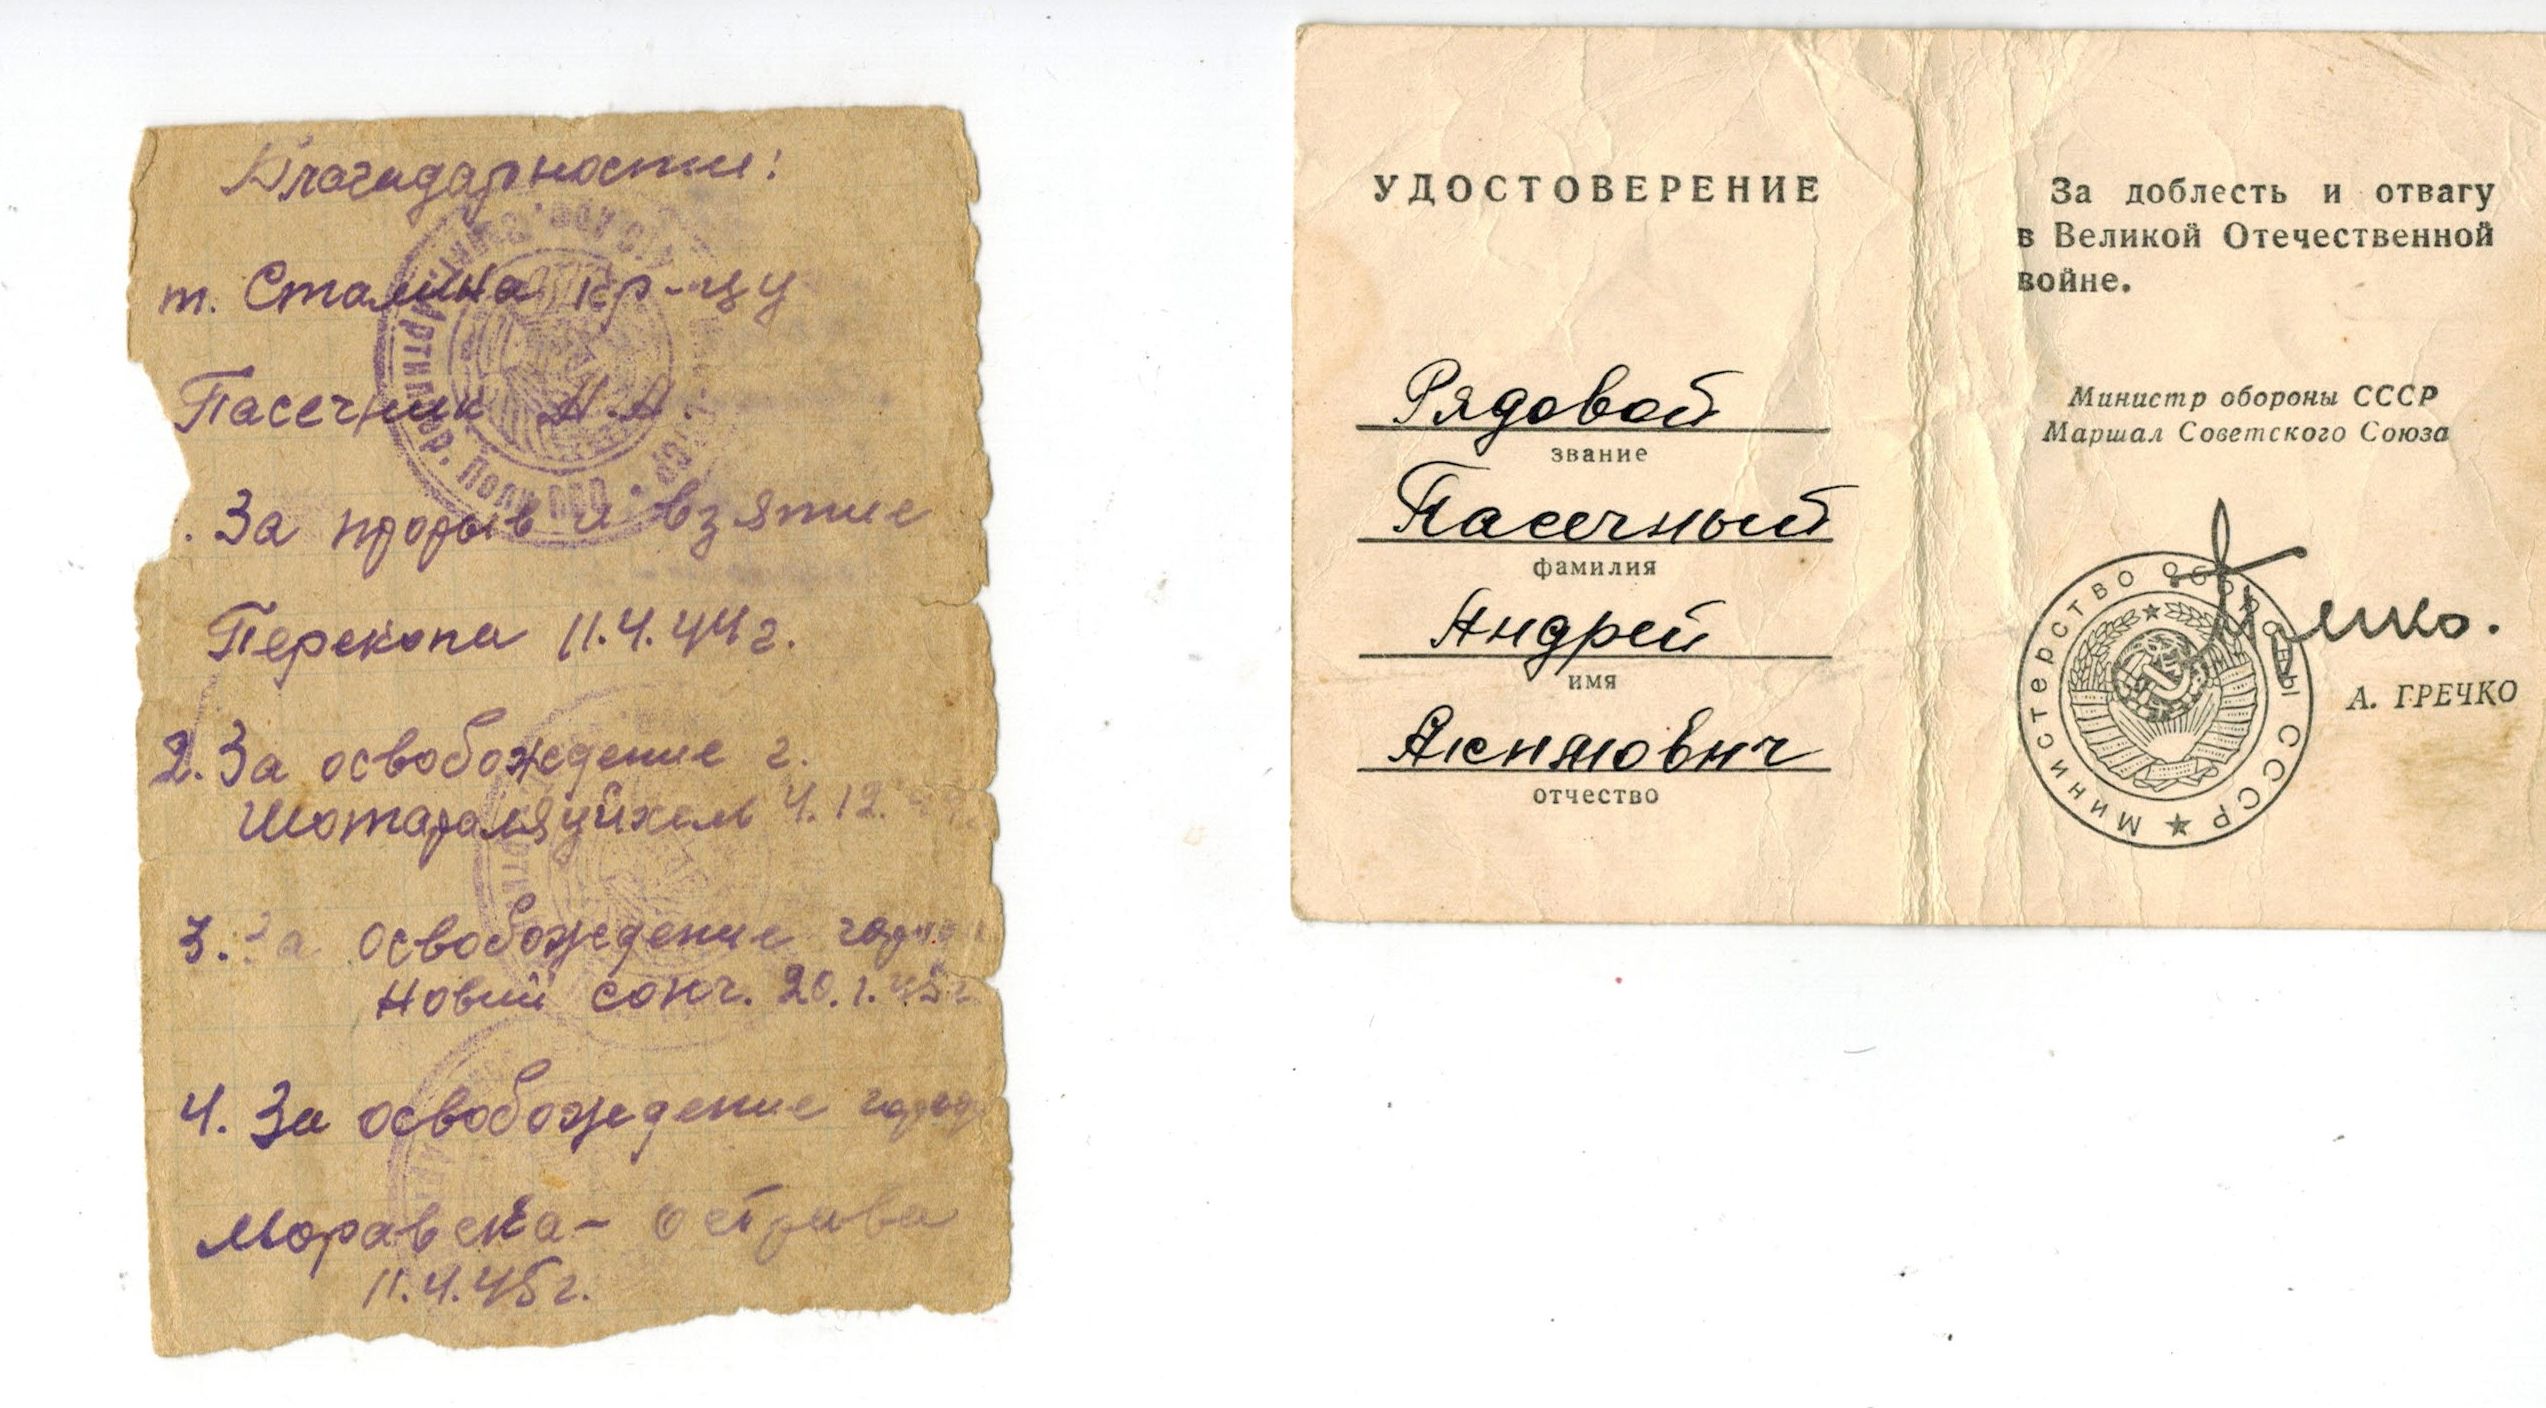 Благодарности:
т. Сталина кр-цу
Пасечник А.А.
. За прорыв и взятие
Перекопа 11.4.44 г.
2. За освобождение г.
Шотараляуйхель 4.12.
3. За освобождение города
Новый сонч. 20.1.45 г
4. За освобождение город
Моравска-острава
11.4.45 г.
УДОСТОВЕРЕНИЕ
Рядовой
звание
Пасечный
фамилия
Андрей
имя
Акимович
отчество
За доблесть и отвагу
в Великой Отечественной
войне.
Министр обороны СССР
Маршал Советского Союза
Гречко.
А. ГРЕЧКО
МИНИСТЕРСТВО ОБОРОНЫ СССР